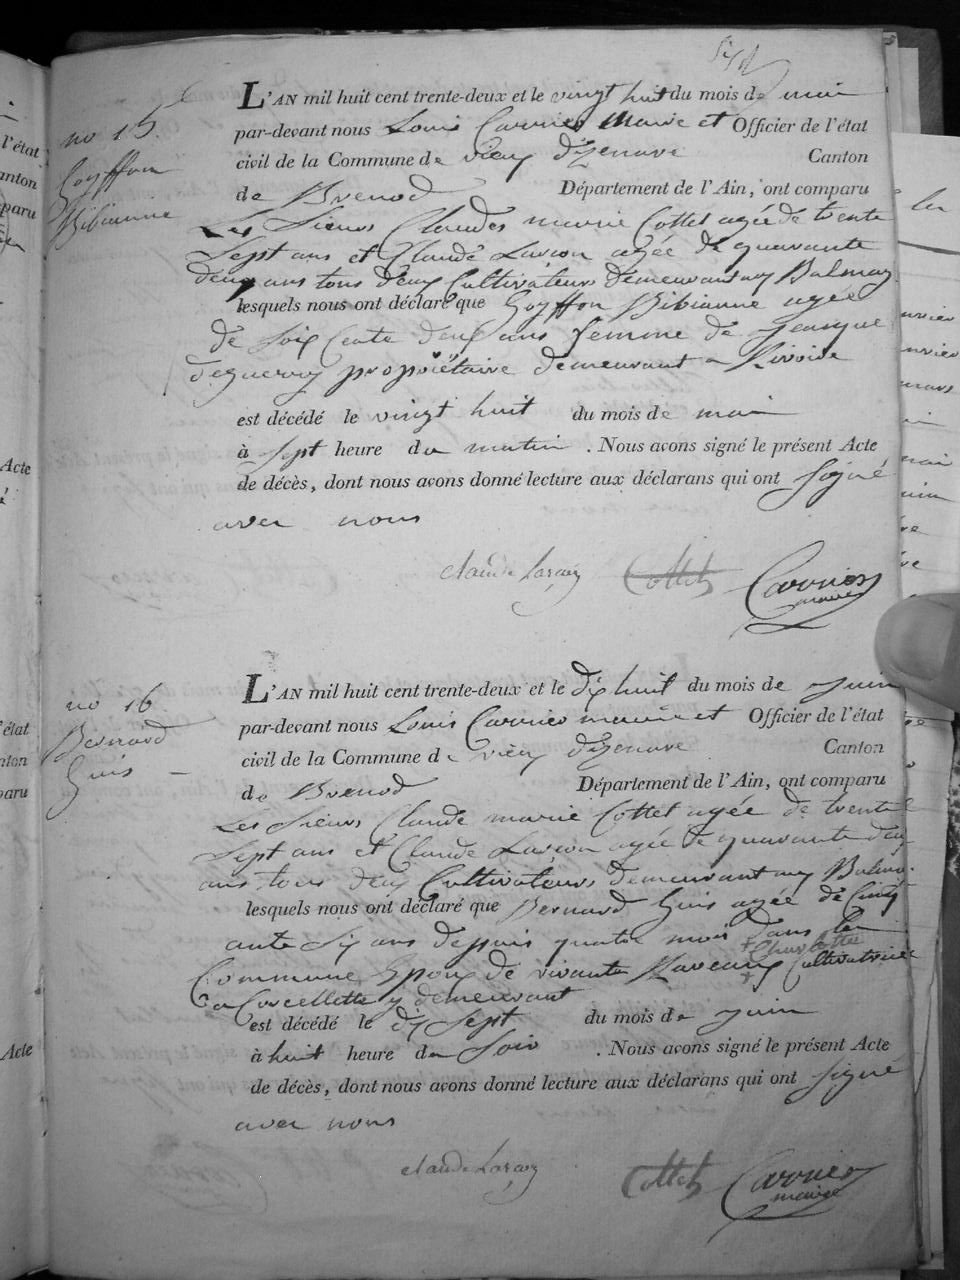 no 15
Goyffon
Bibianne
L'AN mil huit cent trente-deux et le vingt huit du mois de mai
par-devant nous Louis Carrier Maire et Officier de l'état
civil de la Commune de vieu d'Izenave Canton
de Brenod Département de l'Ain, ont comparu
Les Sieurs Claudes marie Cottet agée de trente
Sept ans et Claude Larcon agée de quarante
deux ans tous deux Cultivateurs demeurant au Balmay
lesquels nous ont déclaré que Goyffon Bibianne agée
de Soix Cente deux ans femme de
proprietaire demeurant a
est décédé le vingt huit du mois de mai
à Sept heure du matin . Nous avons signé le présent Acte
de décès, dont nous avons donné lecture aux déclarans qui ont Signé
avec nous
Claude Larcon Cottet Carrier
maire
no 16
Bernard
Guis
L'AN mil huit cent trente-deux et le dix huit du mois de Juin
par-devant nous Louis Carrier maire et Officier de l'état
civil de la Commune de vieu d'Izenave Canton
de Brenod Département de l'Ain, ont comparu
Les Sieurs Claude marie Cottet agée de trente
Sept ans et Claude Larcon agée de quarante deux
ans tous deux Cultivateurs demeurant au Balmay
lesquels nous ont déclaré que Bernard Guis agée de Cinq
ante Six ans depuis quatre mois dans la
+ Charlotte
Commune Epoux de vivante + Cultivatrice
a Corcellette y demeurant
est décédé le dix Sept du mois de Juin
à huit heure du Soir . Nous avons signé le présent Acte
de décès, dont nous avons donné lecture aux déclarans qui ont Signé
avec nous
Claude Larcon Cottet Carrier
maire